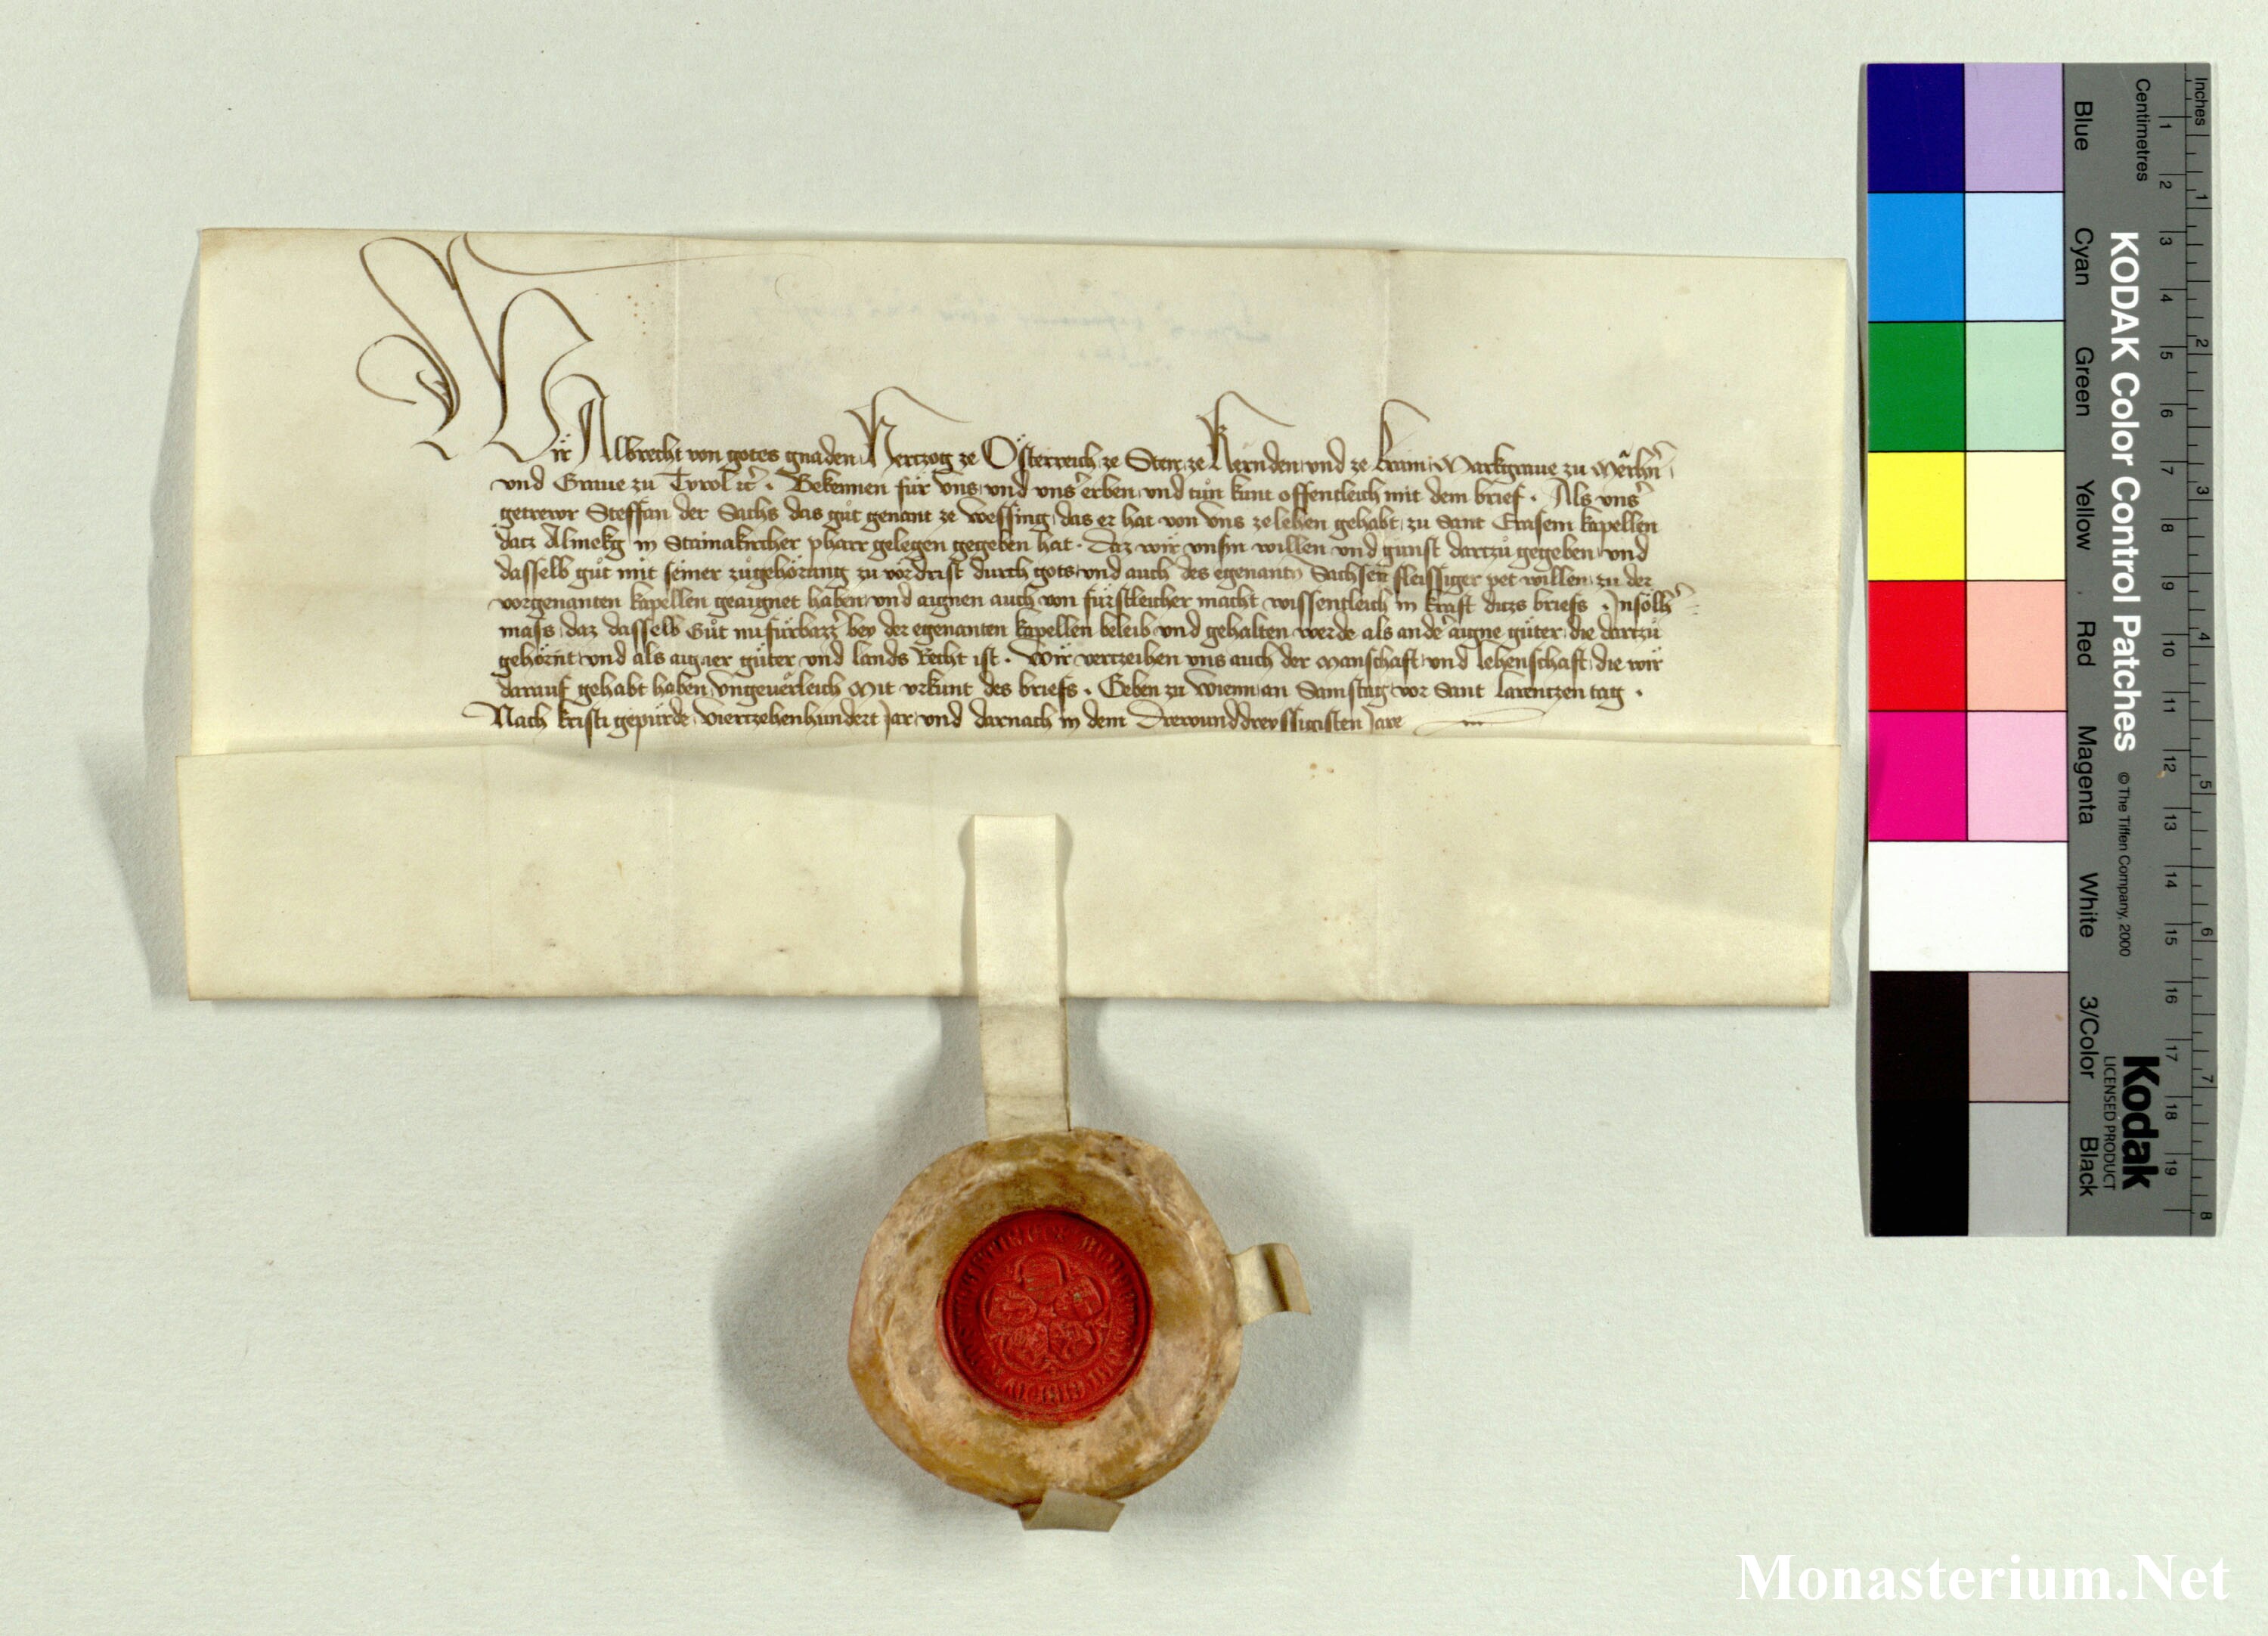 Wir Albrecht von gotes gnaden Hertzog ze Österreich ze Steir ze Kernden und ze Krain Markgraue zu Merhern
vnd Graue zu Tyrol etc. Bekennen für vns vnd vns erben vnd tůn kunt offentleich mit dem brief. Als vns
getrewr Steffan der Sachs das gůt genant ze Wessing das er hat von vns ze lehen gehabt zu Sant Erasem kapellen
datz Almekg in Stainakircher pharr gelegen gegeben hat. Daz wir vnsn willen vnd gunst dartzů gegeben vnd
dasselb gůt mit seiner zůgehörung zu vördrist durch gots vnd auch des egenantn Sachsen fleissiger pet willen zu der
vorgenanten kapellen geaignet haben vnd aignen auch von fürstleicher macht wissentleich in kraft ditzs briefs. In sölh
mass daz dasselb Gůt nu fürbazz bey der egenanten kapellen beleib vnd gehalten werde als ander aigne güter die dartzů
gehörnt vnd als aigner güter vnd lands Recht ist. Wir vertzeihen vns auch der manschaft vnd lehenschaft die wir
darauf gehabt haben vngeuerleich Mit vrkunt des briefs. Geben zu Wienn an Samstag vor Sant Larentzen tag.
Nach kristi gepürde viertzehenhundert Jar vnd darnach in dem Drewunddreyssigisten Jare
Inches
Centimetres
KODAK Color Control Patches © The Tiffen Company, 2000
Kodak
LICENSED PRODUCT
Blue Cyan Green Yellow Red Magenta White 3/Color Black
1 2 3 4 5 6 7 8 9 10 11 12 13 14 15 16 17 18 19
1 2 3 4 5 6 7 8
Monasterium.Net